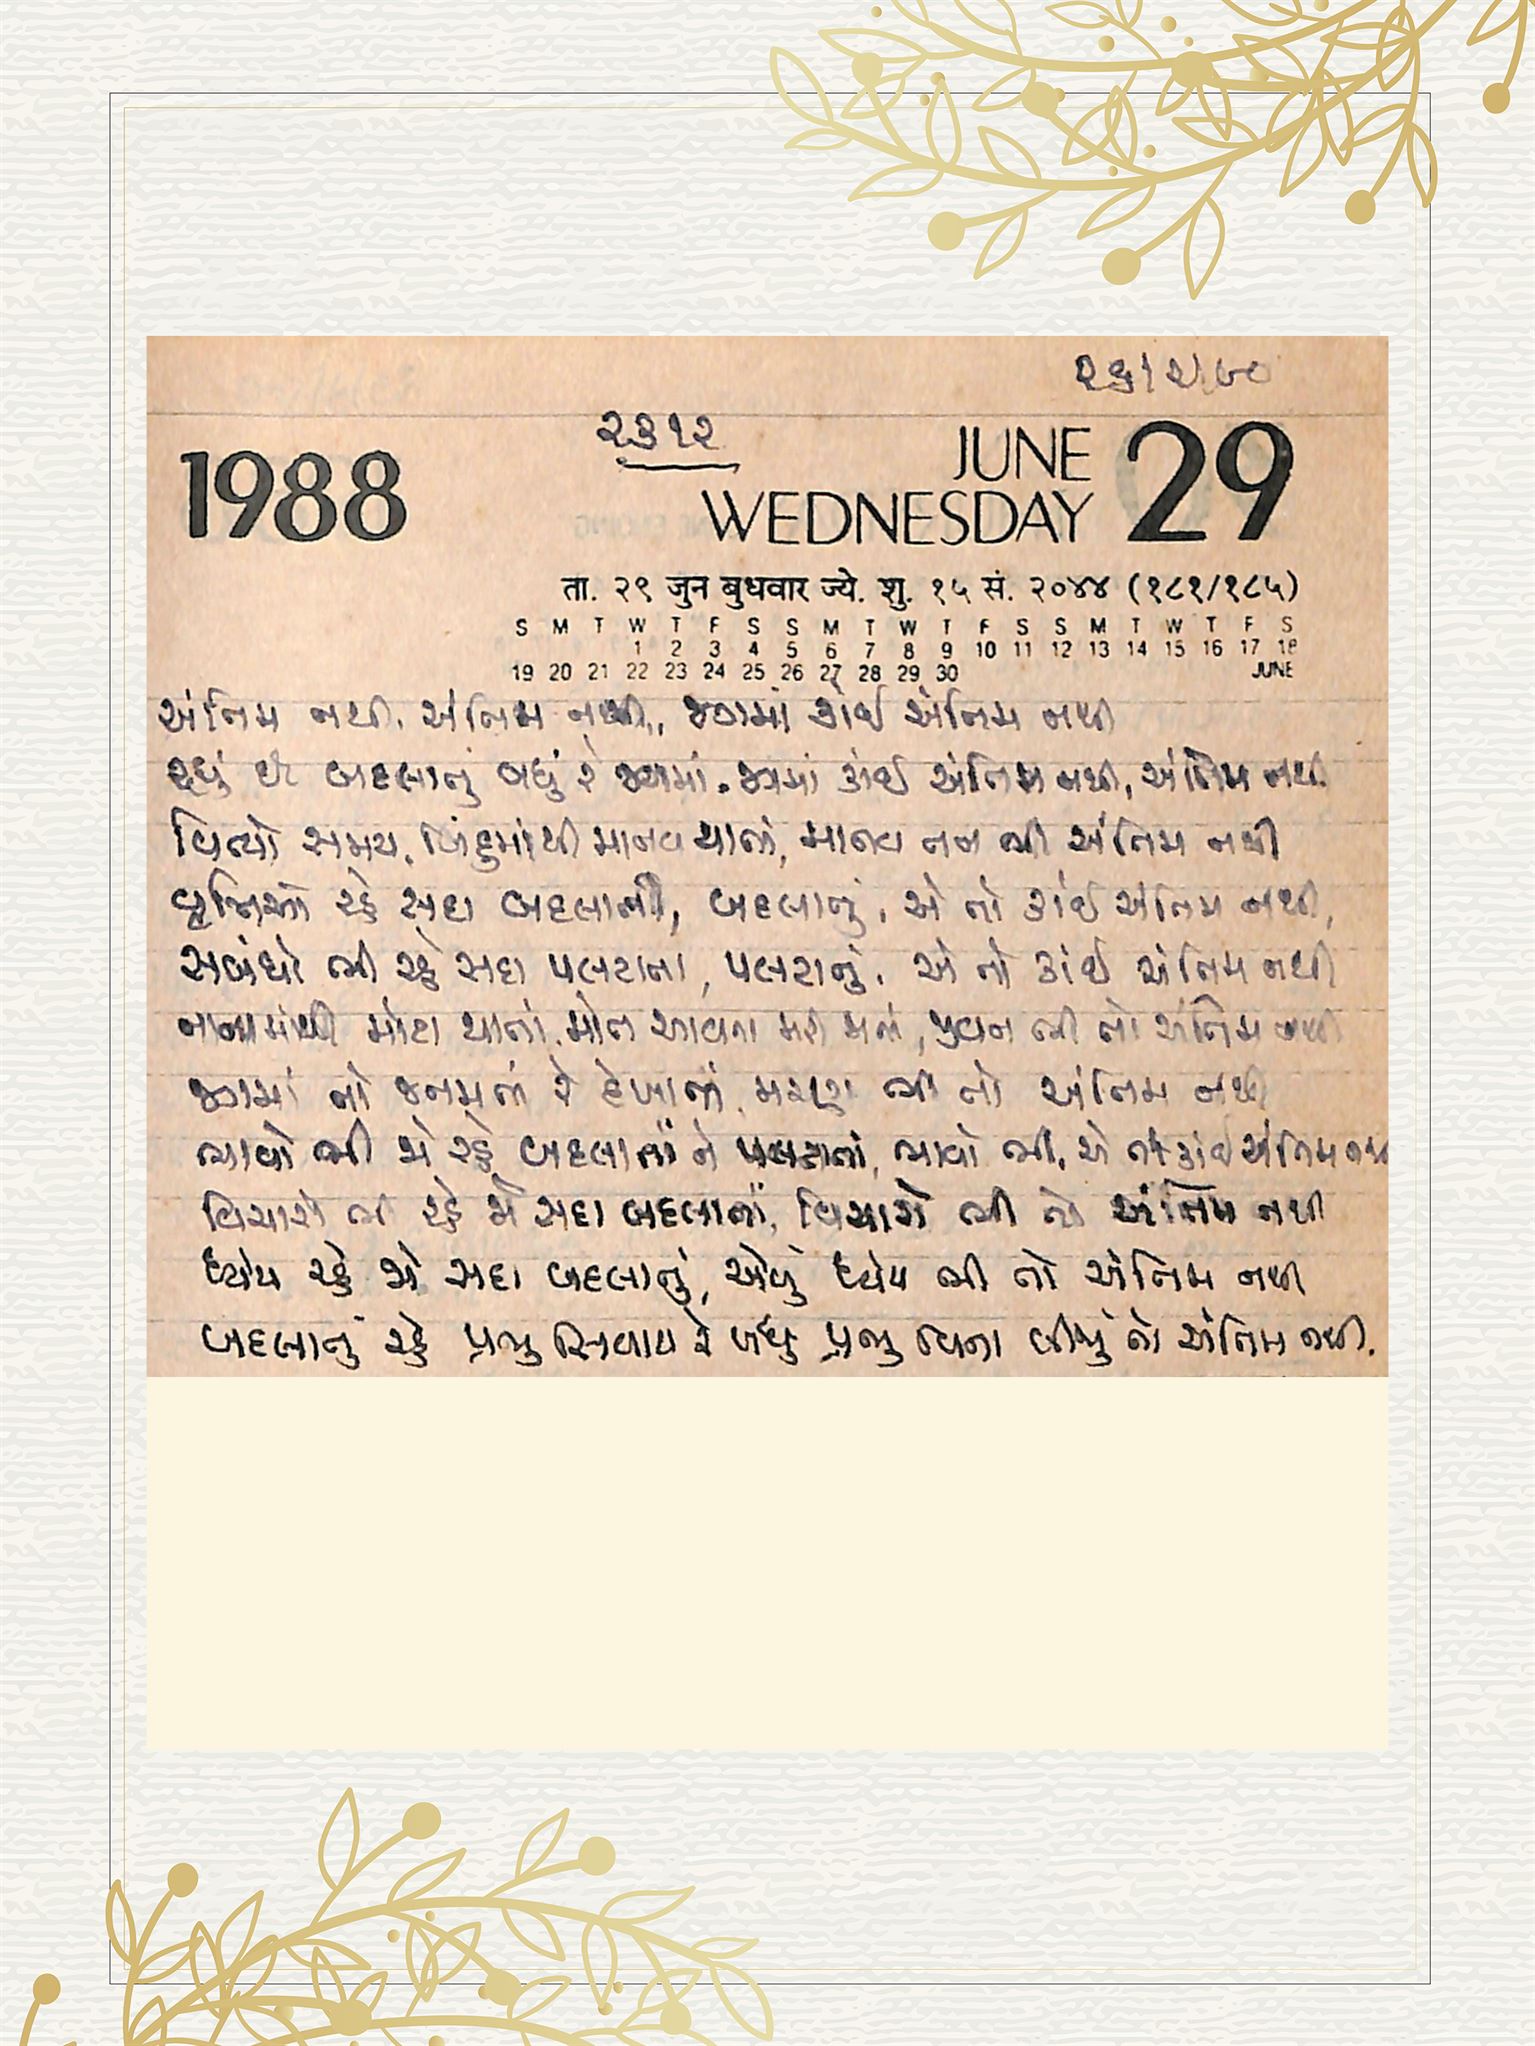 ૨૩૧૨
1988
JUNE 29
WEDNESDAY
ता. २९ जुन बुधवार ज्ये. शु. १५ सं. २०४४ (१८१/१८५)
S M T W T F S S M T W T F S S M T W T F S
1 2 3 4 5 6 7 8 9 10 11 12 13 14 15 16 17 18
19 20 21 22 23 24 25 26 27 28 29 30 JUNE
અંતિમ નથી, અંતિમ નથી, જગમાં કાંઈ અંતિમ નથી
રહ્યું છે બદલાતું બધું રે જગમાં, જગમાં કાંઈ અંતિમ નથી, અંતિમ નથી
વિત્યો સમય, બિંદુમાંથી માનવ થાતાં, માનવ તન ભી અંતિમ નથી
વૃત્તિઓ રહે સદા બદલાતી, બદલાતું, એ તો કાંઈ અંતિમ નથી,
સબંધો ભી રહે સદા પલટાતા, પલટાતું, એ તો કાંઈ અંતિમ નથી
નાનામાંથી મોટા થાતાં, મોત આવતા મરી જાતાં, જીવન ભી તો અંતિમ નથી
જગમાં તો જનમતાં રે દેખાતાં, મરણ ભી તો અંતિમ નથી
ભાવો ભી જે રહે બદલાતાં ને પલટાતાં, ભાવો ભી, એ કાંઈ અંતિમ નથી
વિચારો ભી રહે જે સદા બદલાતાં, વિચારો ભી તો અંતિમ નથી
ધ્યેય રહે જે સદા બદલાતું, એવું ધ્યેય ભી તો અંતિમ નથી
બદલાતું રહે પ્રભુ સિવાય રે બધું પ્રભુ વિના બીજું તો અંતિમ નથી.